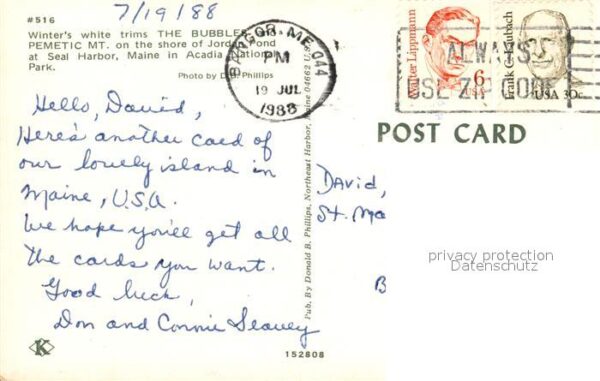 7/19/88
#516
Winter's white trims THE BUBBLES
PEMETIC MT. on the shore of Jordan Pond
at Seal Harbor, Maine in Acadia National
Park.
Photo by Phillips
BANGOR, ME 044
PM
19 JUL
1988
ALWAYS
USE ZIP CODE
Walter Lippmann
6
USA
Frank C. Laubach
USA 30c
POST CARD
Hello, David,
Here's another card of
our lovely island in
Maine, U.S.A.
We hope you'll get all
the cards you want.
Good luck,
Don and Connie Seavey
Pub. By Donald B. Phillips, Northeast Harbor, Maine 04662 U.S.A.
David,
St. Ma
B
privacy protection
Datenschutz
K
152808